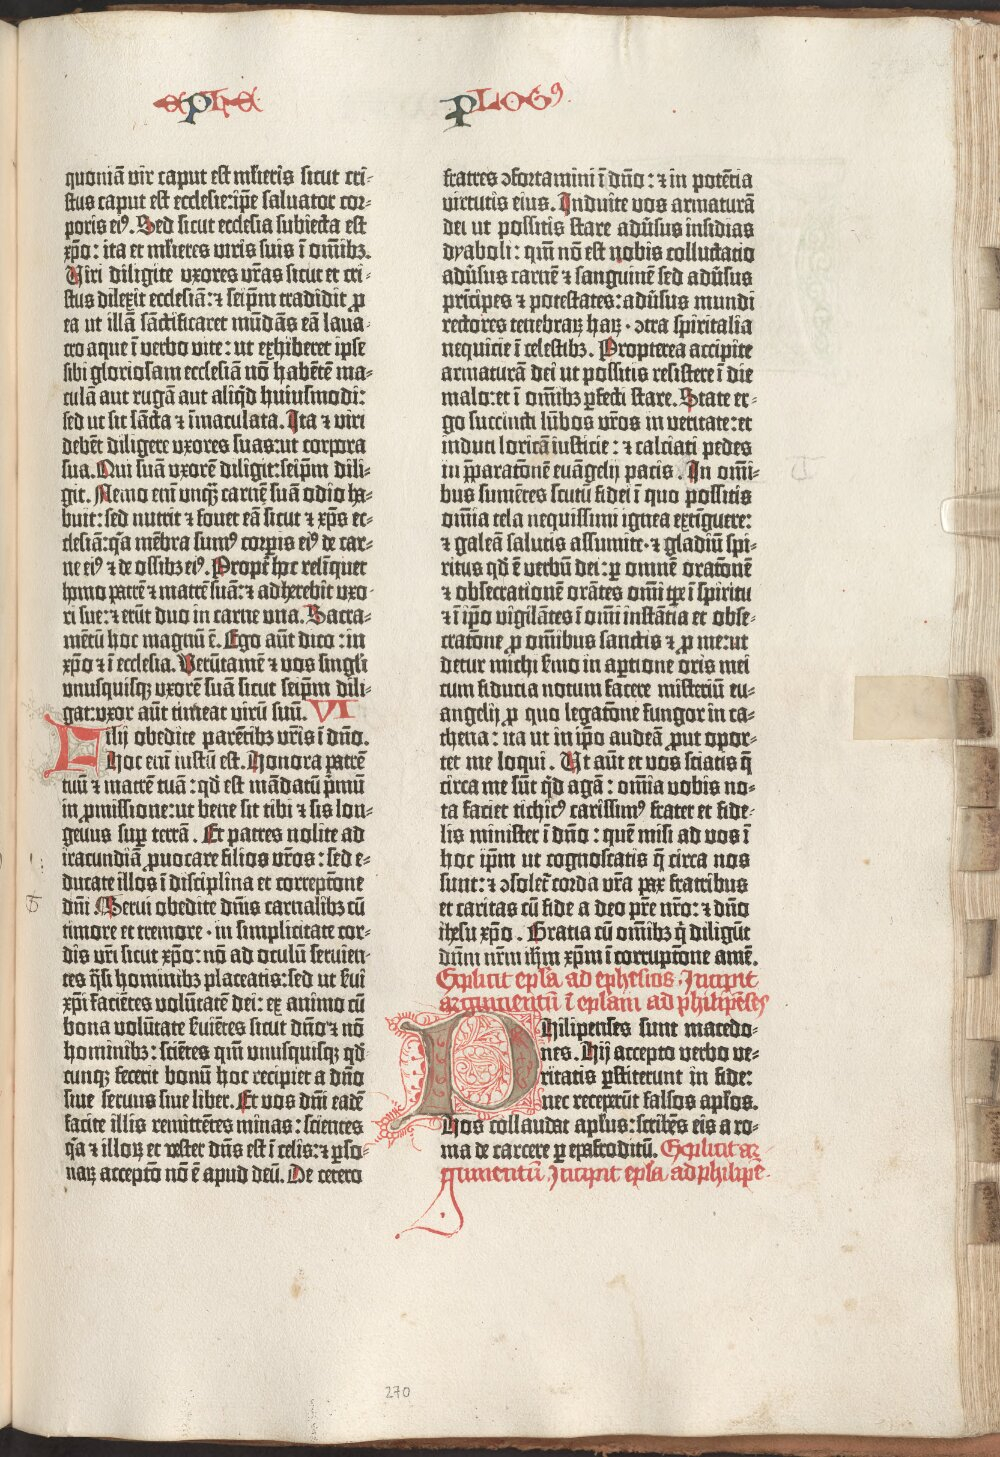 ephe
ꝓLOGꝰ
quoniā vir caput est mulieris sicut cri-
stus caput est ecclesie: ipse saluator cor-
poris eiꝰ. Sed sicut ecclesia subiecta est
xp̄o: ita et mulieres viris suis ī om̄ibꝫ.
Viri diligite vxores vr̄as sicut et cri-
stus dilexit ecclesiā: ⁊ seip̄m tradidit ꝓ
ea ut illā sāctificaret mūdās eā laua-
cro aque ī verbo vite: ut exhiberet ipse
sibi gloriosam ecclesiā nō habētē ma-
culā aut rugā aut aliq̄d huiusmodi:
sed ut sit sācta ⁊ īmaculata. Ita ⁊ viri
debēt diligere vxores suas: ut corpora
sua. Qui suā vxorē diligit: seip̄m dili-
git. Nemo enī unqꝫ carnē suā odio ha-
buit: sed nutrit ⁊ fouet eā sicut ⁊ xp̄s ec-
clesiā: q̄a mēbra sumꝰ corꝑis eiꝰ de car-
ne eiꝰ ⁊ de ossibꝫ eiꝰ. Propt̄ hoc relīquet
homo patrē ⁊ matrē suā: ⁊ adherebit vxo-
ri sue: ⁊ erūt duo in carne vna. Sacra-
mētū hoc magnū ē. Ego aūt dico: in
xp̄o ⁊ ī ecclesia. Verūtamē ⁊ vos singl̄i
vnusquisqꝫ vxorē suā sicut seip̄m dili-
gat: vxor aūt timeat virū suū. VI
Filij obedite parētibꝫ vr̄is ī dn̄o.
Hoc enī iustū est. Honora patrē
tuū ⁊ matrē tuā: qd̄ est mādatū p̄mū
in ꝓmissione: ut bene sit tibi ⁊ sis lon-
geuus suꝑ terrā. Et patres nolite ad
iracundiā ꝓuocare filios vr̄os: sed e-
ducate illos ī disciplina et correpōne
dn̄i. Serui obedite dn̄is carnalibꝫ cū
timore et tremore · in simplicitate cor-
dis vr̄i sicut xp̄o: nō ad oculū seruien-
tes q̄si hominibꝫ placeātis: sed ut s̄ui
xp̄i faciētes volūtatē dei: ex animo cū
bona volūtate s̄uiētes sicut dn̄o ⁊ nō
hominibꝫ: sciētes qm̄ vnusquisqꝫ qd̄-
cunqꝫ fecerit bonū hoc recipiet a dn̄o
siue seruus siue liber. Et vos dn̄i eadē
facite illis remittētes minas: scientes
q̄a ⁊ illoꝝ et vester dn̄s est ī celis: ⁊ ꝑso-
naꝝ accepto nō ē apud deū. De cetero
fratres ꝯfortamini ī dn̄o: ⁊ in potētia
virtutis eius. Induite vos armaturā
dei ut possitis stare adūsus insidias
dyaboli: qm̄ nō est nobis colluctatio
adūsus carnē ⁊ sanguinē sed adūsus
prīcipes ⁊ potestates: adūsus mundi
rectores tenebraꝝ haꝝ · ꝯtra spiritalia
nequicie ī celestibꝫ. Propterea accipite
armaturā dei ut possitis resistere ī die
malo: et ī om̄ibꝫ ꝑfecti stare. State er-
go succincti lūbos vr̄os in veritate: et
induti loricā iusticie: ⁊ calciati pedes
in p̄paratōne euāgelij pacis. In om̄i-
bus sumētes scutū fidei ī quo possitis
om̄ia tela nequissimi ignea extīguere:
⁊ galeā salutis assumite · ⁊ gladiū spi-
ritus qd̄ ē verbū dei: ꝑ omnē oratōnē
⁊ obsecrationē orātes om̄i tꝑe ī spiritu
⁊ ī ip̄o vigilātes ī om̄i instātia et obse-
cratōne ꝓ om̄ibus sanctis ⁊ ꝓ me: ut
detur michi s̄mo in aꝑtione oris mei
cum fiducia notum facere misteriū eu-
angelij ꝓ quo legatōne fungor in ca-
thena: ita ut in ip̄o audeā ꝓut opor-
tet me loqui. Ut aūt et vos sciatis q̄
circa me sūt qd̄ agā: om̄ia vobis no-
ta faciet tichicꝰ carissimꝰ frater et fide-
lis minister ī dn̄o: quē misi ad vos ī
hoc ip̄m ut cognoscatis q̄ circa nos
sunt: ⁊ ꝯsolet̄ corda vr̄a pax fratribus
et caritas cū fide a deo pr̄e nr̄o: ⁊ dn̄o
ihesu xp̄o. Gratia cū om̄ibꝫ q̄ diligūt
dn̄m nr̄m ih̄m xp̄m ī corruptione amē.
Explicit epl̄a ad ephesios. Incipit
argumentū ī eplam ad philipēses
Philipenses sunt macedo-
nes. Hij accepto verbo ve-
ritatis ꝑstiterunt in fide:
nec receperūt falsos apl̄os.
Hos collaudat apl̄us: scribēs eis a ro-
ma de carcere ꝑ epafroditū. Explicit ar-
gumentū. Incipit epl̄a ad philipē-
270